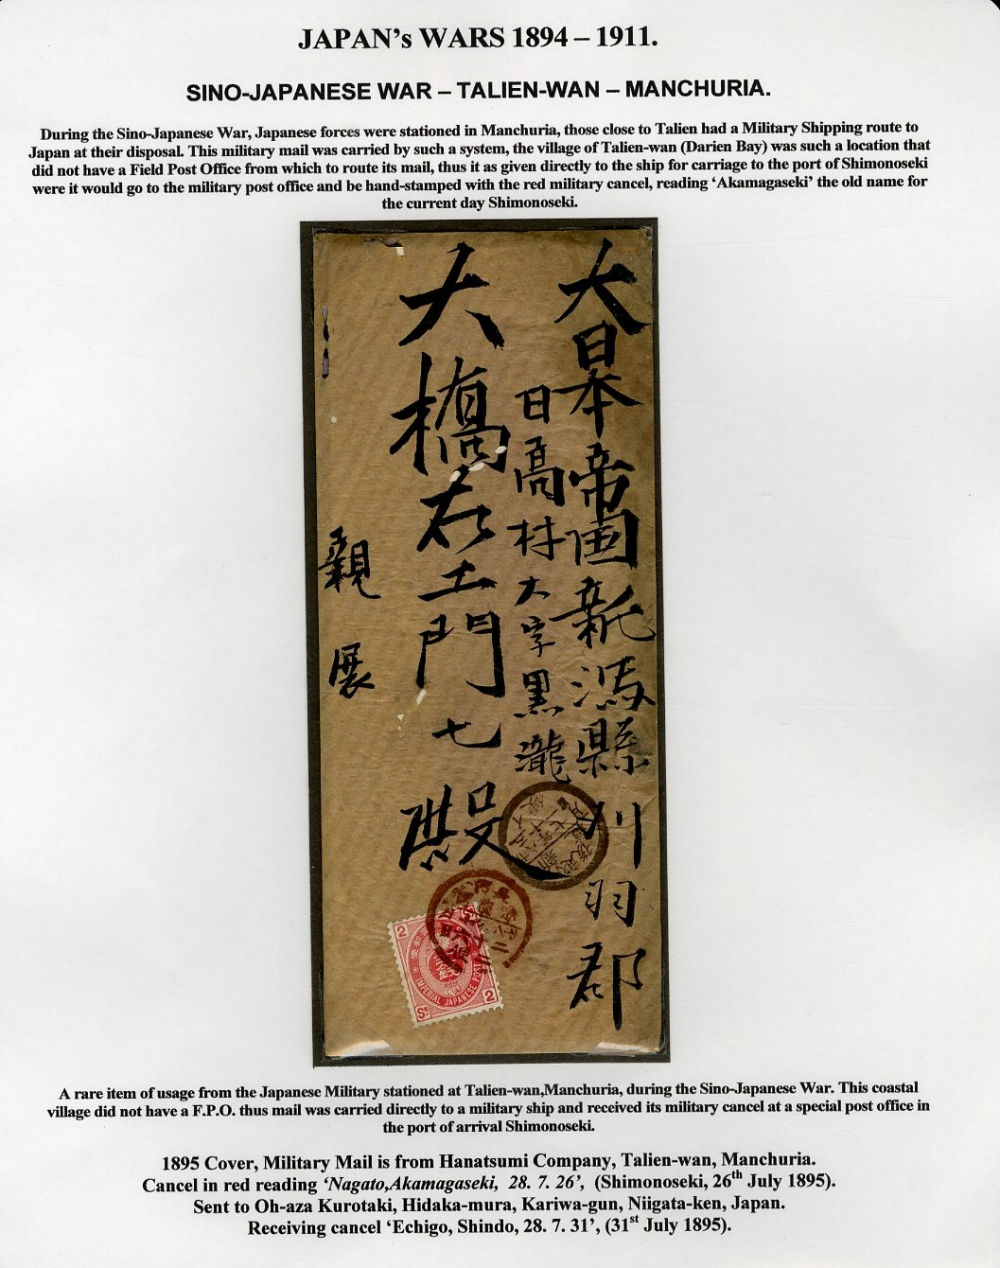 JAPAN's WARS 1894 – 1911.
SINO-JAPANESE WAR – TALIEN-WAN – MANCHURIA.
During the Sino-Japanese War, Japanese forces were stationed in Manchuria, those close to Talien had a Military Shipping route to
Japan at their disposal. This military mail was carried by such a system, the village of Talien-wan (Darien Bay) was such a location that
did not have a Field Post Office from which to route its mail, thus it as given directly to the ship for carriage to the port of Shimonoseki
were it would go to the military post office and be hand-stamped with the red military cancel, reading ‘Akamagaseki’ the old name for
the current day Shimonoseki.
大日本帝國新潟縣刈羽郡
日高村大字黒瀧
大橋右エ門七殿
親展
2
2
Sn
IMPERIAL JAPANESE POST
A rare item of usage from the Japanese Military stationed at Talien-wan,Manchuria, during the Sino-Japanese War. This coastal
village did not have a F.P.O. thus mail was carried directly to a military ship and received its military cancel at a special post office in
the port of arrival Shimonoseki.
1895 Cover, Military Mail is from Hanatsumi Company, Talien-wan, Manchuria.
Cancel in red reading ‘Nagato,Akamagaseki, 28. 7. 26’, (Shimonoseki, 26th July 1895).
Sent to Oh-aza Kurotaki, Hidaka-mura, Kariwa-gun, Niigata-ken, Japan.
Receiving cancel ‘Echigo, Shindo, 28. 7. 31’, (31st July 1895).